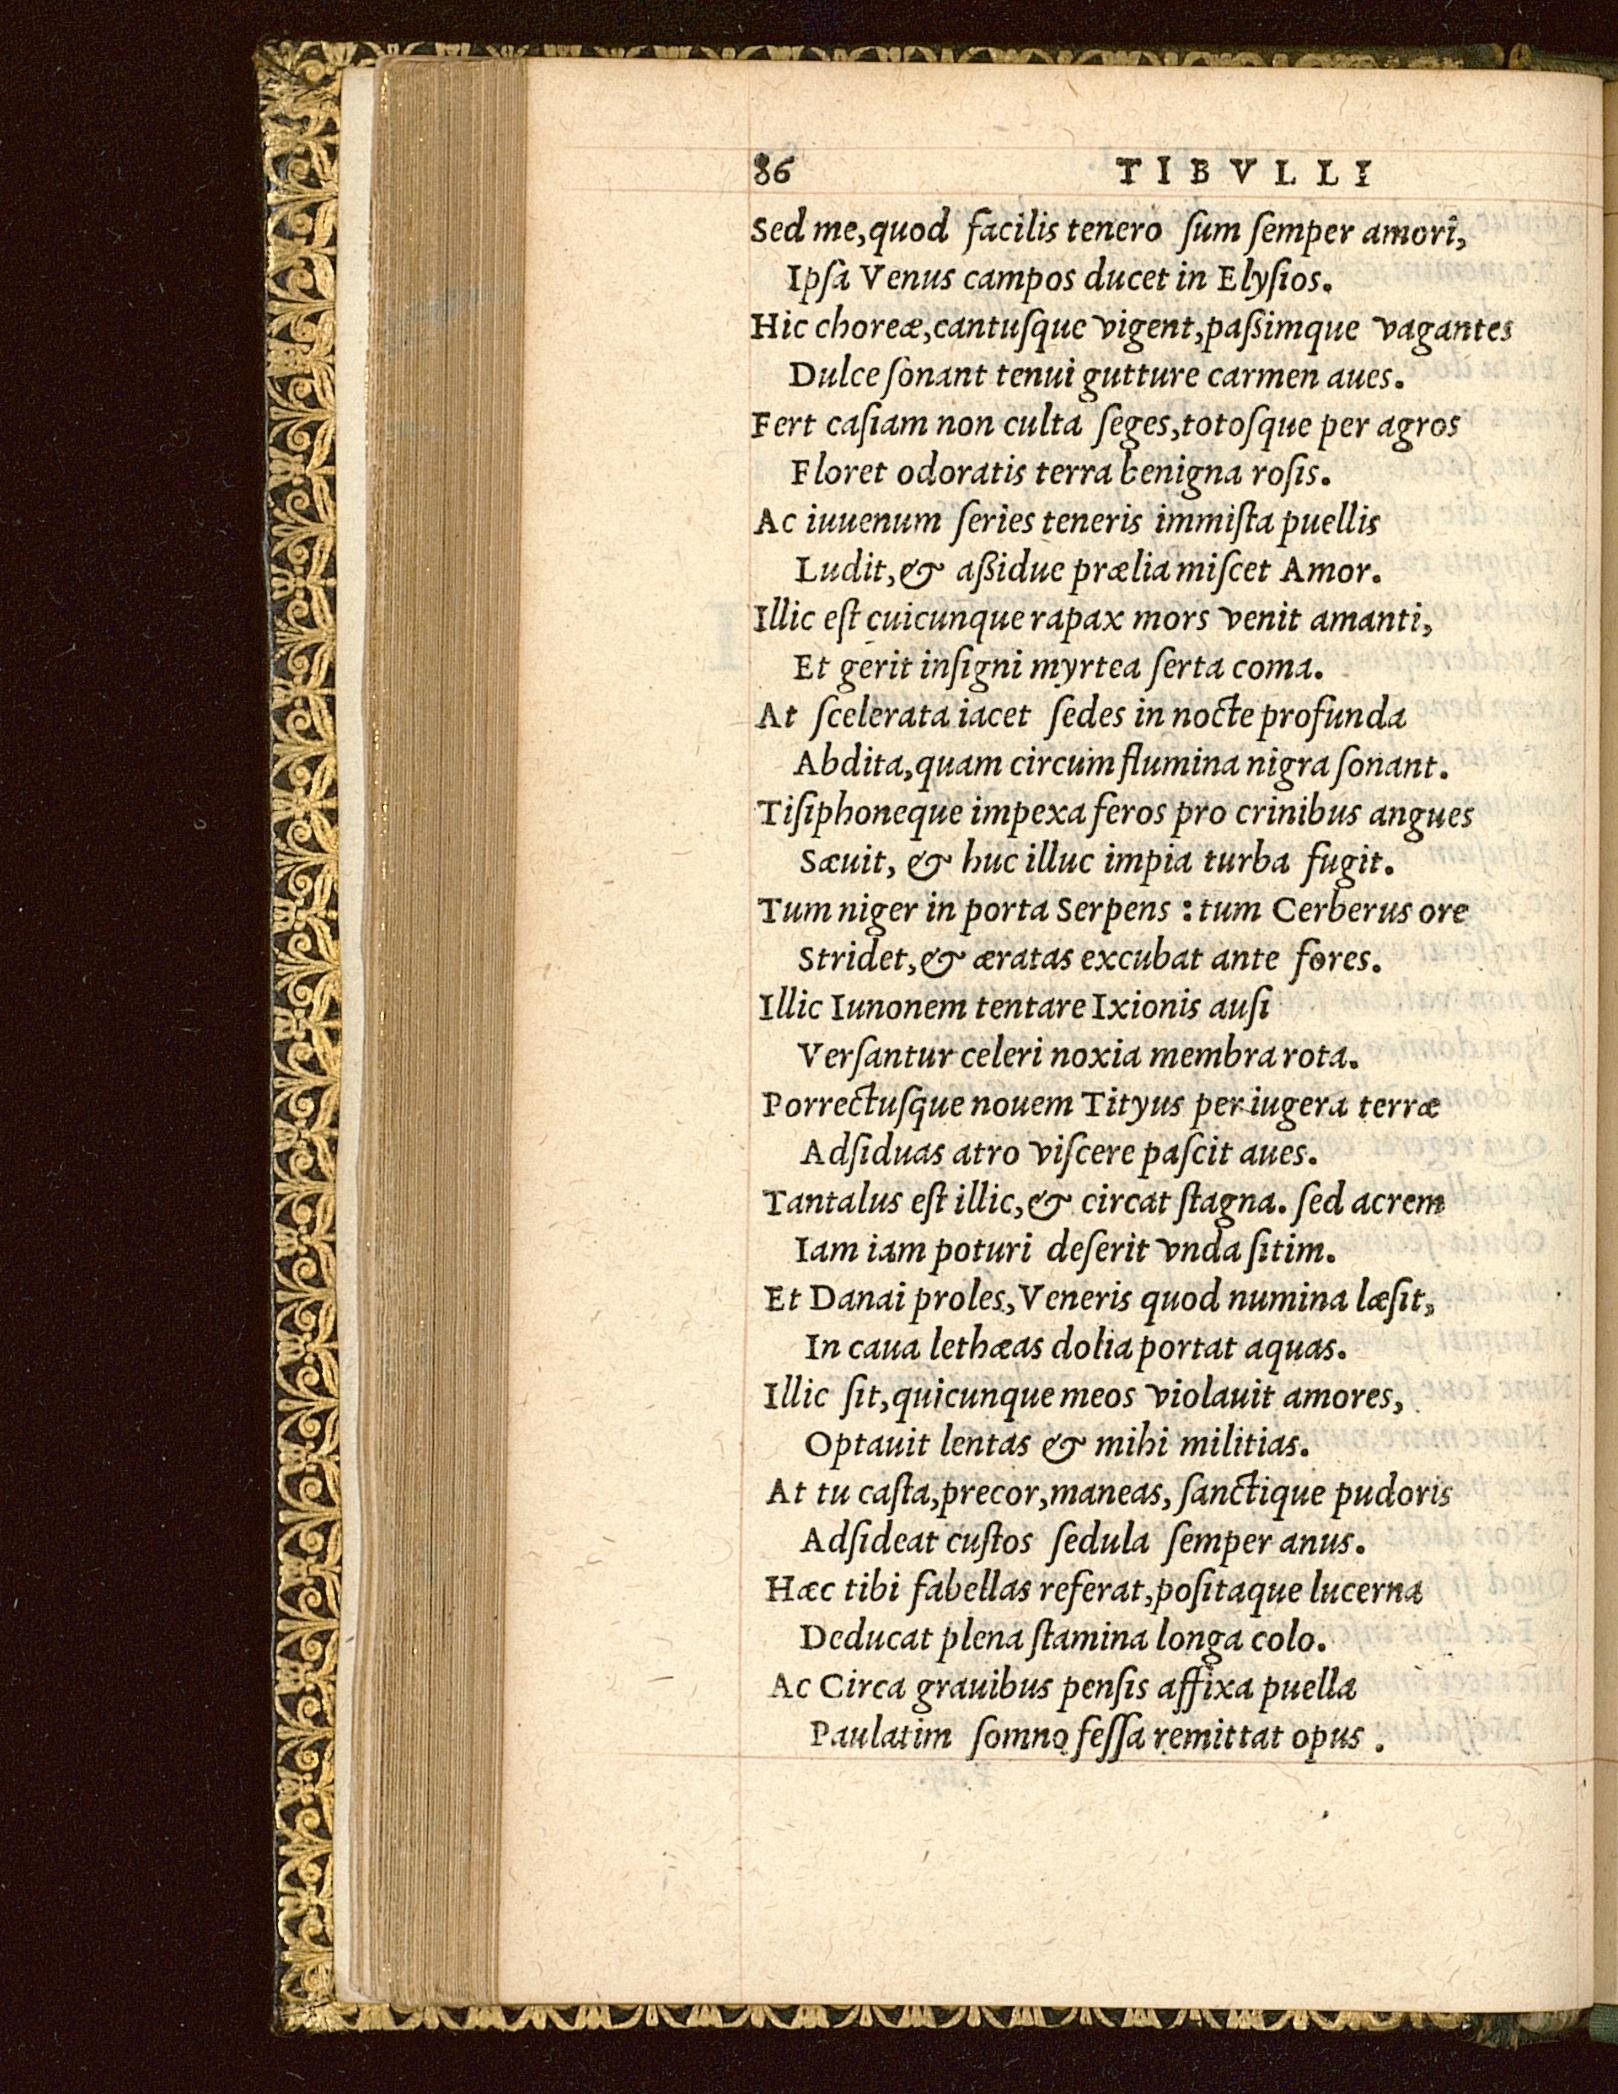 86 TIBVLLI
Sed me,quod facilis tenero ſum ſemper amori,
Ipſa Venus campos ducet in Elyſios.
Hic choreæ,cantuſque vigent,paßimque vagantes
Dulce ſonant tenui gutture carmen aues.
Fert caſiam non culta ſeges,totoſque per agros
Floret odoratis terra benigna roſis.
Ac iuuenum ſeries teneris immiſta puellis
Ludit,& aßidue prælia miſcet Amor.
Illic eſt cuicunque rapax mors venit amanti,
Et gerit inſigni myrtea ſerta coma.
At ſcelerata iacet ſedes in nocte profunda
Abdita,quam circum flumina nigra ſonant.
Tiſiphoneque impexa feros pro crinibus angues
Sæuit, & huc illuc impia turba fugit.
Tum niger in porta Serpens : tum Cerberus ore
Stridet,& æratas excubat ante fores.
Illic Iunonem tentare Ixionis auſi
Verſantur celeri noxia membra rota.
Porrectuſque nouem Tityus per iugera terræ
Adſiduas atro viſcere paſcit aues.
Tantalus eſt illic,& circat ſtagna. ſed acrem
Iam iam poturi deſerit vnda ſitim.
Et Danai proles,Veneris quod numina læſit,
In caua lethæas dolia portat aquas.
Illic ſit,quicunque meos violauit amores,
Optauit lentas & mihi militias.
At tu caſta,precor,maneas, ſanctique pudoris
Adſideat cuſtos ſedula ſemper anus.
Hæc tibi fabellas referat,poſitaque lucerna
Deducat plena ſtamina longa colo.
Ac Circa grauibus penſis affixa puella
Paulatim ſomno feſſa remittat opus .